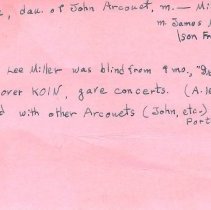 , dau. of John Arcouet, m. — Mi
m James M
(son Fr
Lee Miller was blind from 9 mo.,
over KOIN, gave concerts. (A.
d with other Arcouets (John, etc.)
Port